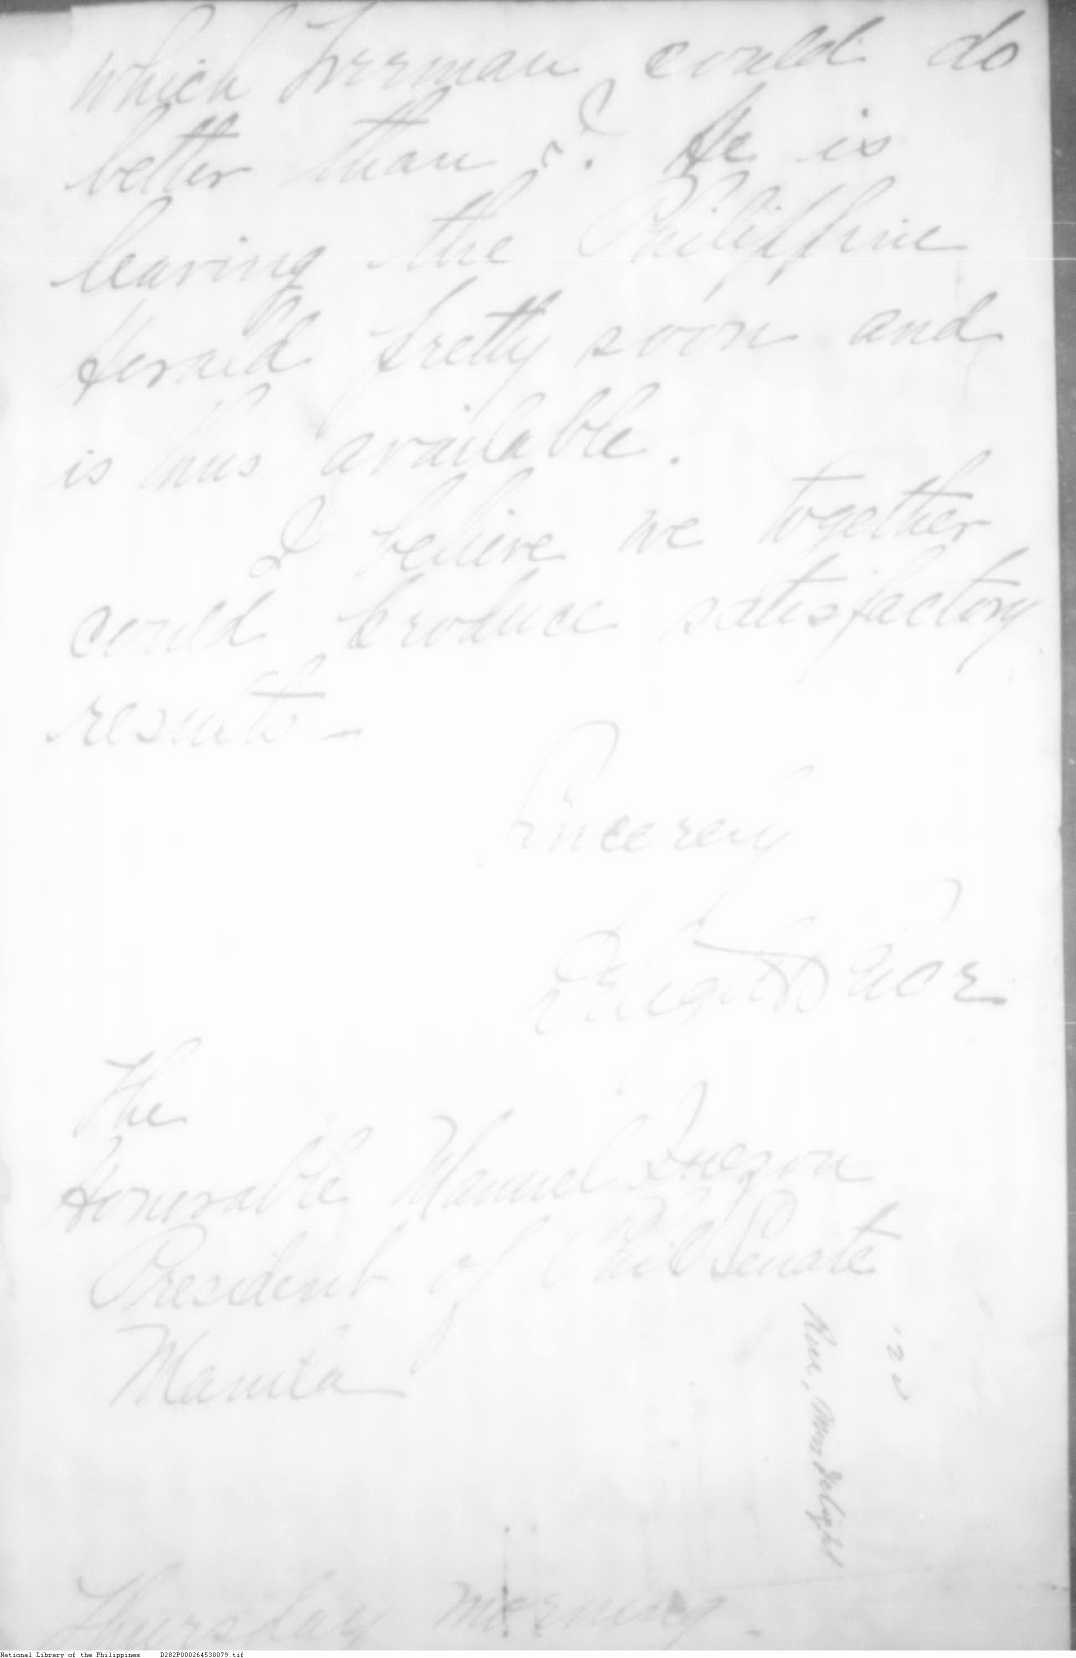 which Freeman could do
better than I? He is
leaving the Philippine
Herald pretty soon and
is thus available.
I believe we together
could produce satisfactory
results –
Sincerely
The
Honorable Manuel Quezon
President of Phil Senate
Manila
'22
Rice, Mrs Delight
Thursday morning.
National Library of the Philippines D282P000264530079.tif